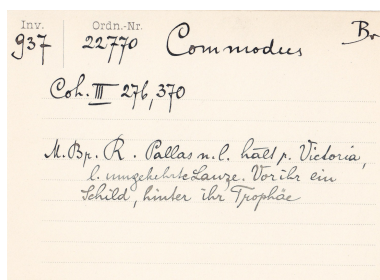 Inv. Ordn.-Nr.
937 22770 Commodus Br
Coh. III 276,370
M. Bp. R. Pallas n. l. hält r. Victoria,
l. umgekehrte Lanze. Vor ihr ein
Schild, hinter ihr Trophäe